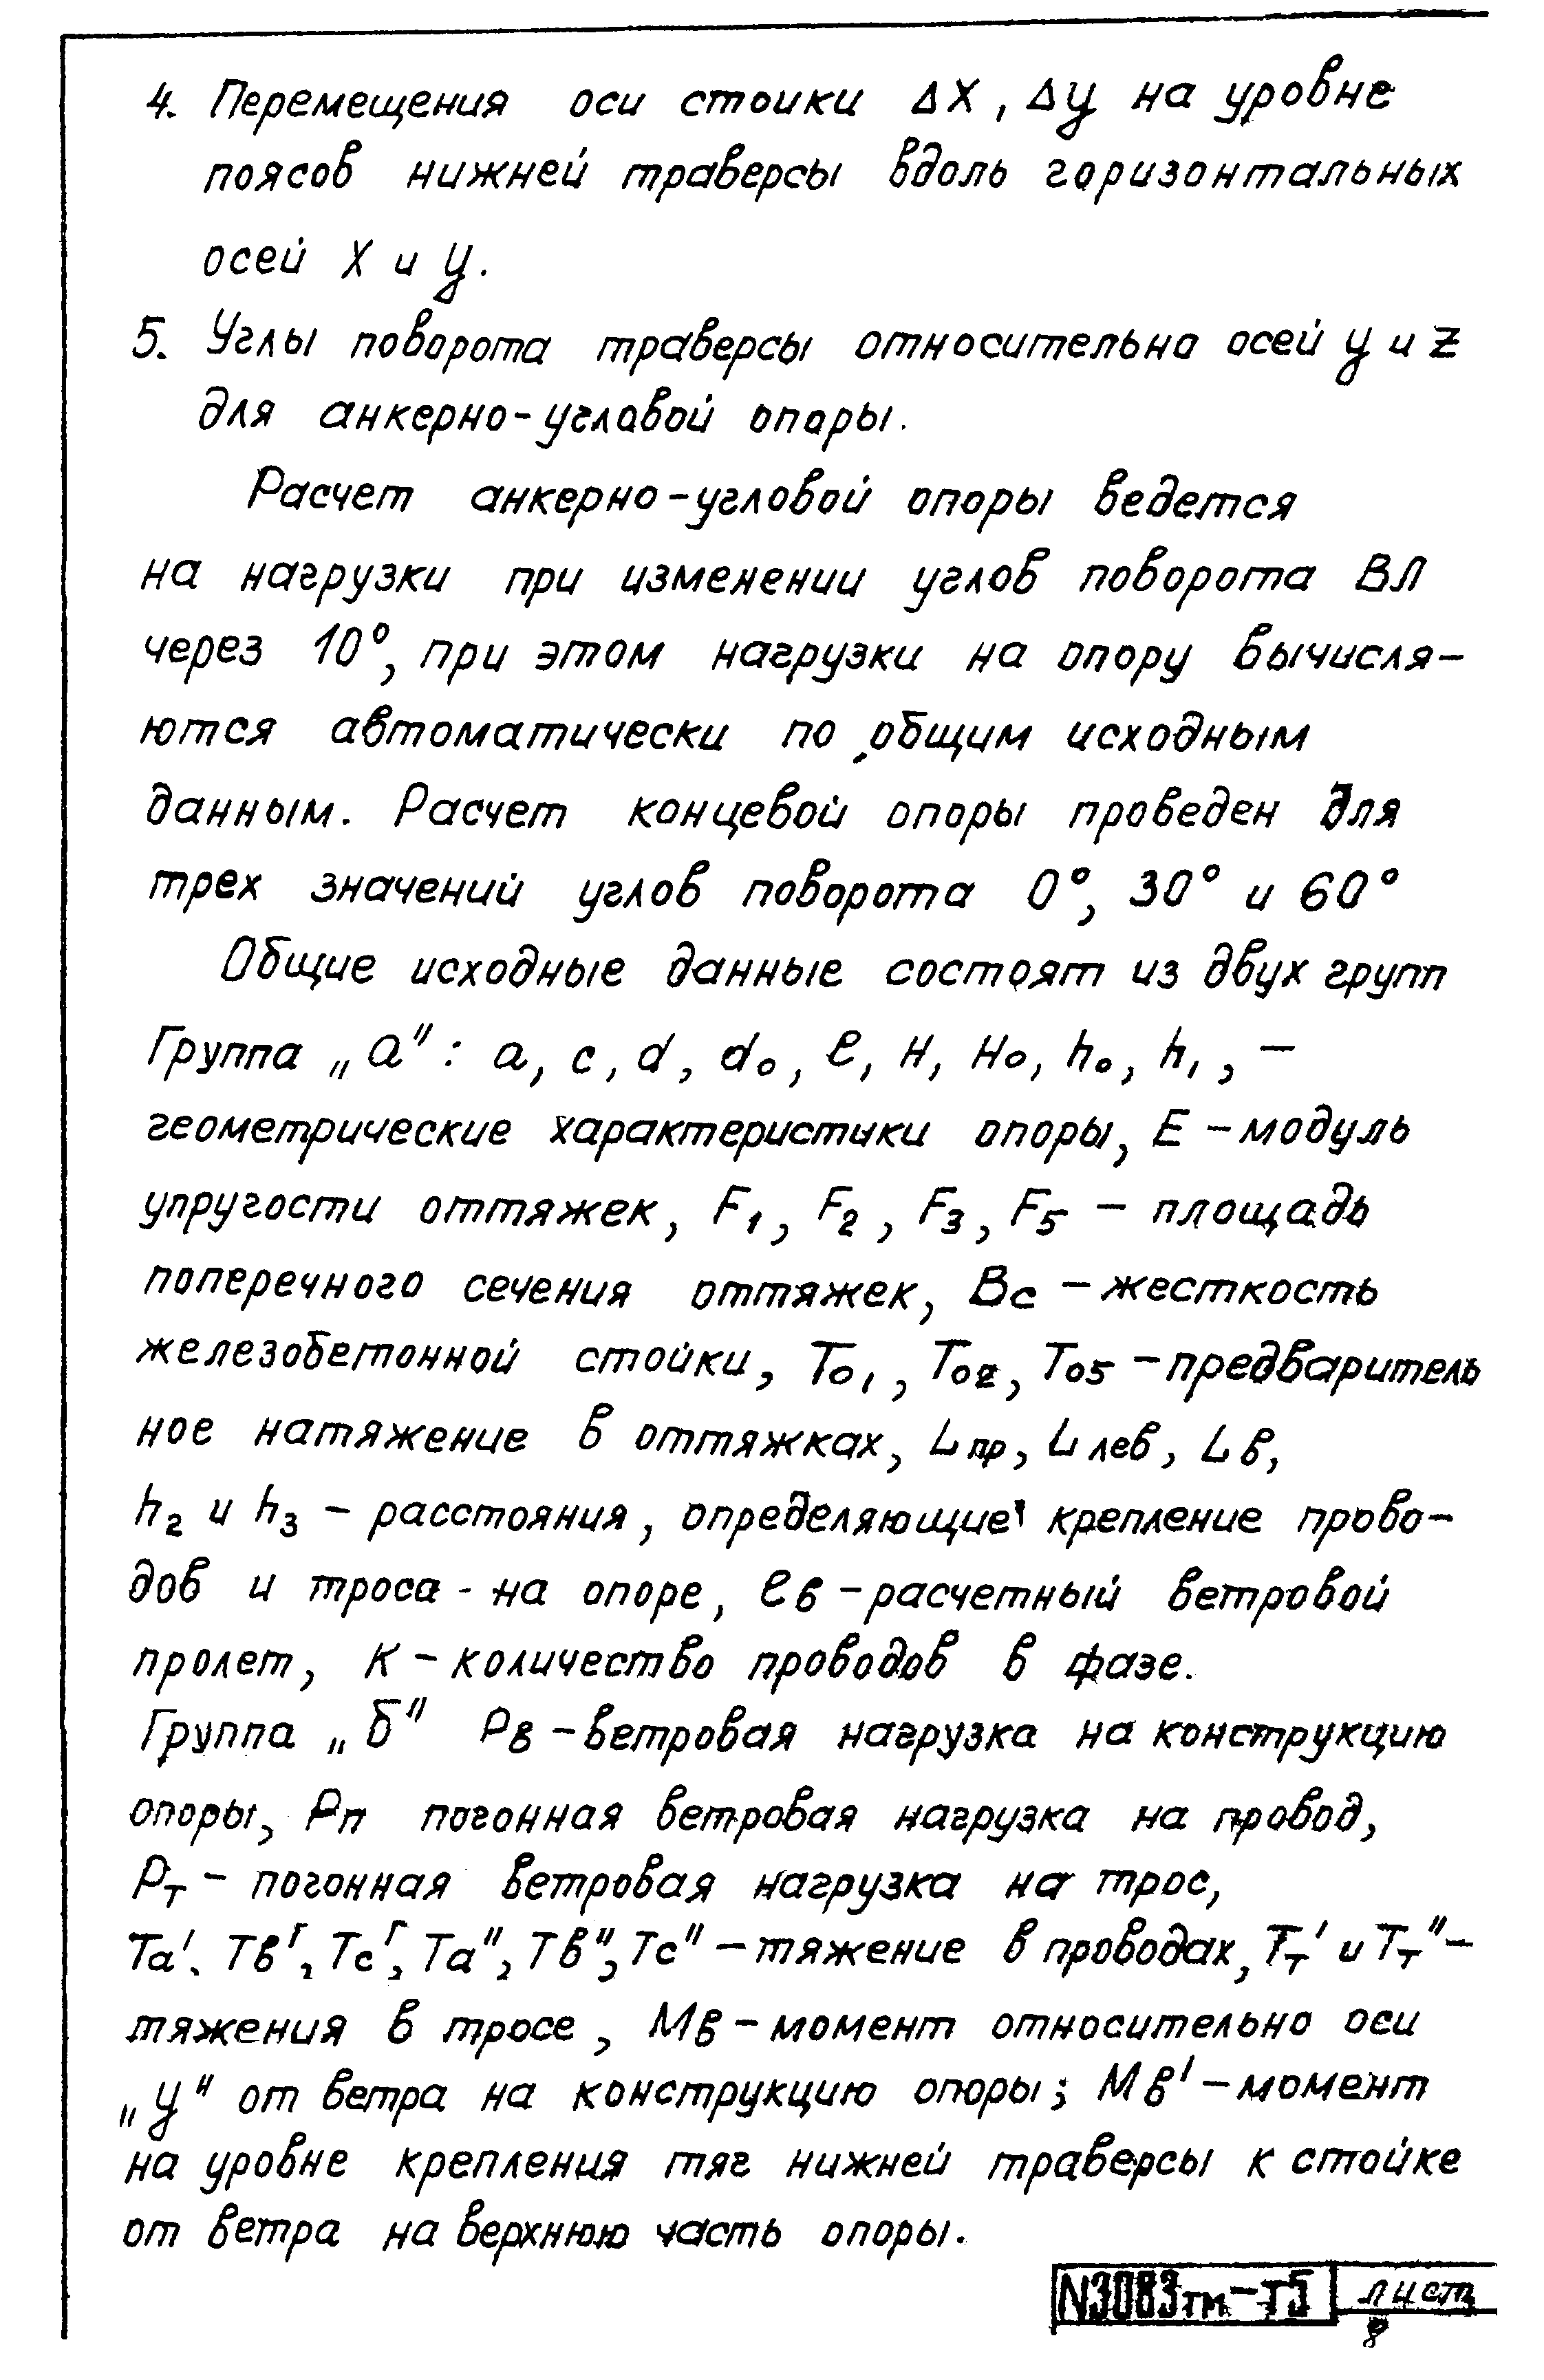 4. Перемещения оси стоики ΔX, Δy на уровне
поясов нижней траверсы вдоль горизонтальных
осей X и y.
5. Углы поворота траверсы относительно осей y и Z
для анкерно-угловой опоры.
Расчет анкерно-угловой опоры ведется
на нагрузки при изменении углов поворота ВЛ
через 10°, при этом нагрузки на опору вычисля-
ются автоматически по общим исходным
данным. Расчет концевой опоры проведен для
трех значений углов поворота 0°, 30° и 60°
Общие исходные данные состоят из двух групп
Группа „а": a, c, d, d₀, ℓ, H, H₀, h₀, h₁, —
геометрические характеристики опоры, E - модуль
упругости оттяжек, F₁, F₂, F₃, F₅ - площадь
поперечного сечения оттяжек, Bc - жесткость
железобетонной стойки, T₀₁, T₀₂, T₀₅ - предваритель
ное натяжение в оттяжках, Lпр, Lлев, Lв,
h₂ и h₃ - расстояния, определяющие крепление прово-
дов и троса - на опоре, ℓв - расчетный ветровой
пролет, К - количество проводов в фазе.
Группа „б" Рв - ветровая нагрузка на конструкцию
опоры, Рп погонная ветровая нагрузка на провод,
Рт - погонная ветровая нагрузка на трос,
Та', Тв', Тс', Та", Тв", Тс" - тяжение в проводах, Тт' и Тт" -
тяжения в тросе, Мв - момент относительно оси
„y" от ветра на конструкцию опоры; Мв' - момент
на уровне крепления тяг нижней траверсы к стойке
от ветра на верхнюю часть опоры.
N3083тм-т5 лист
8